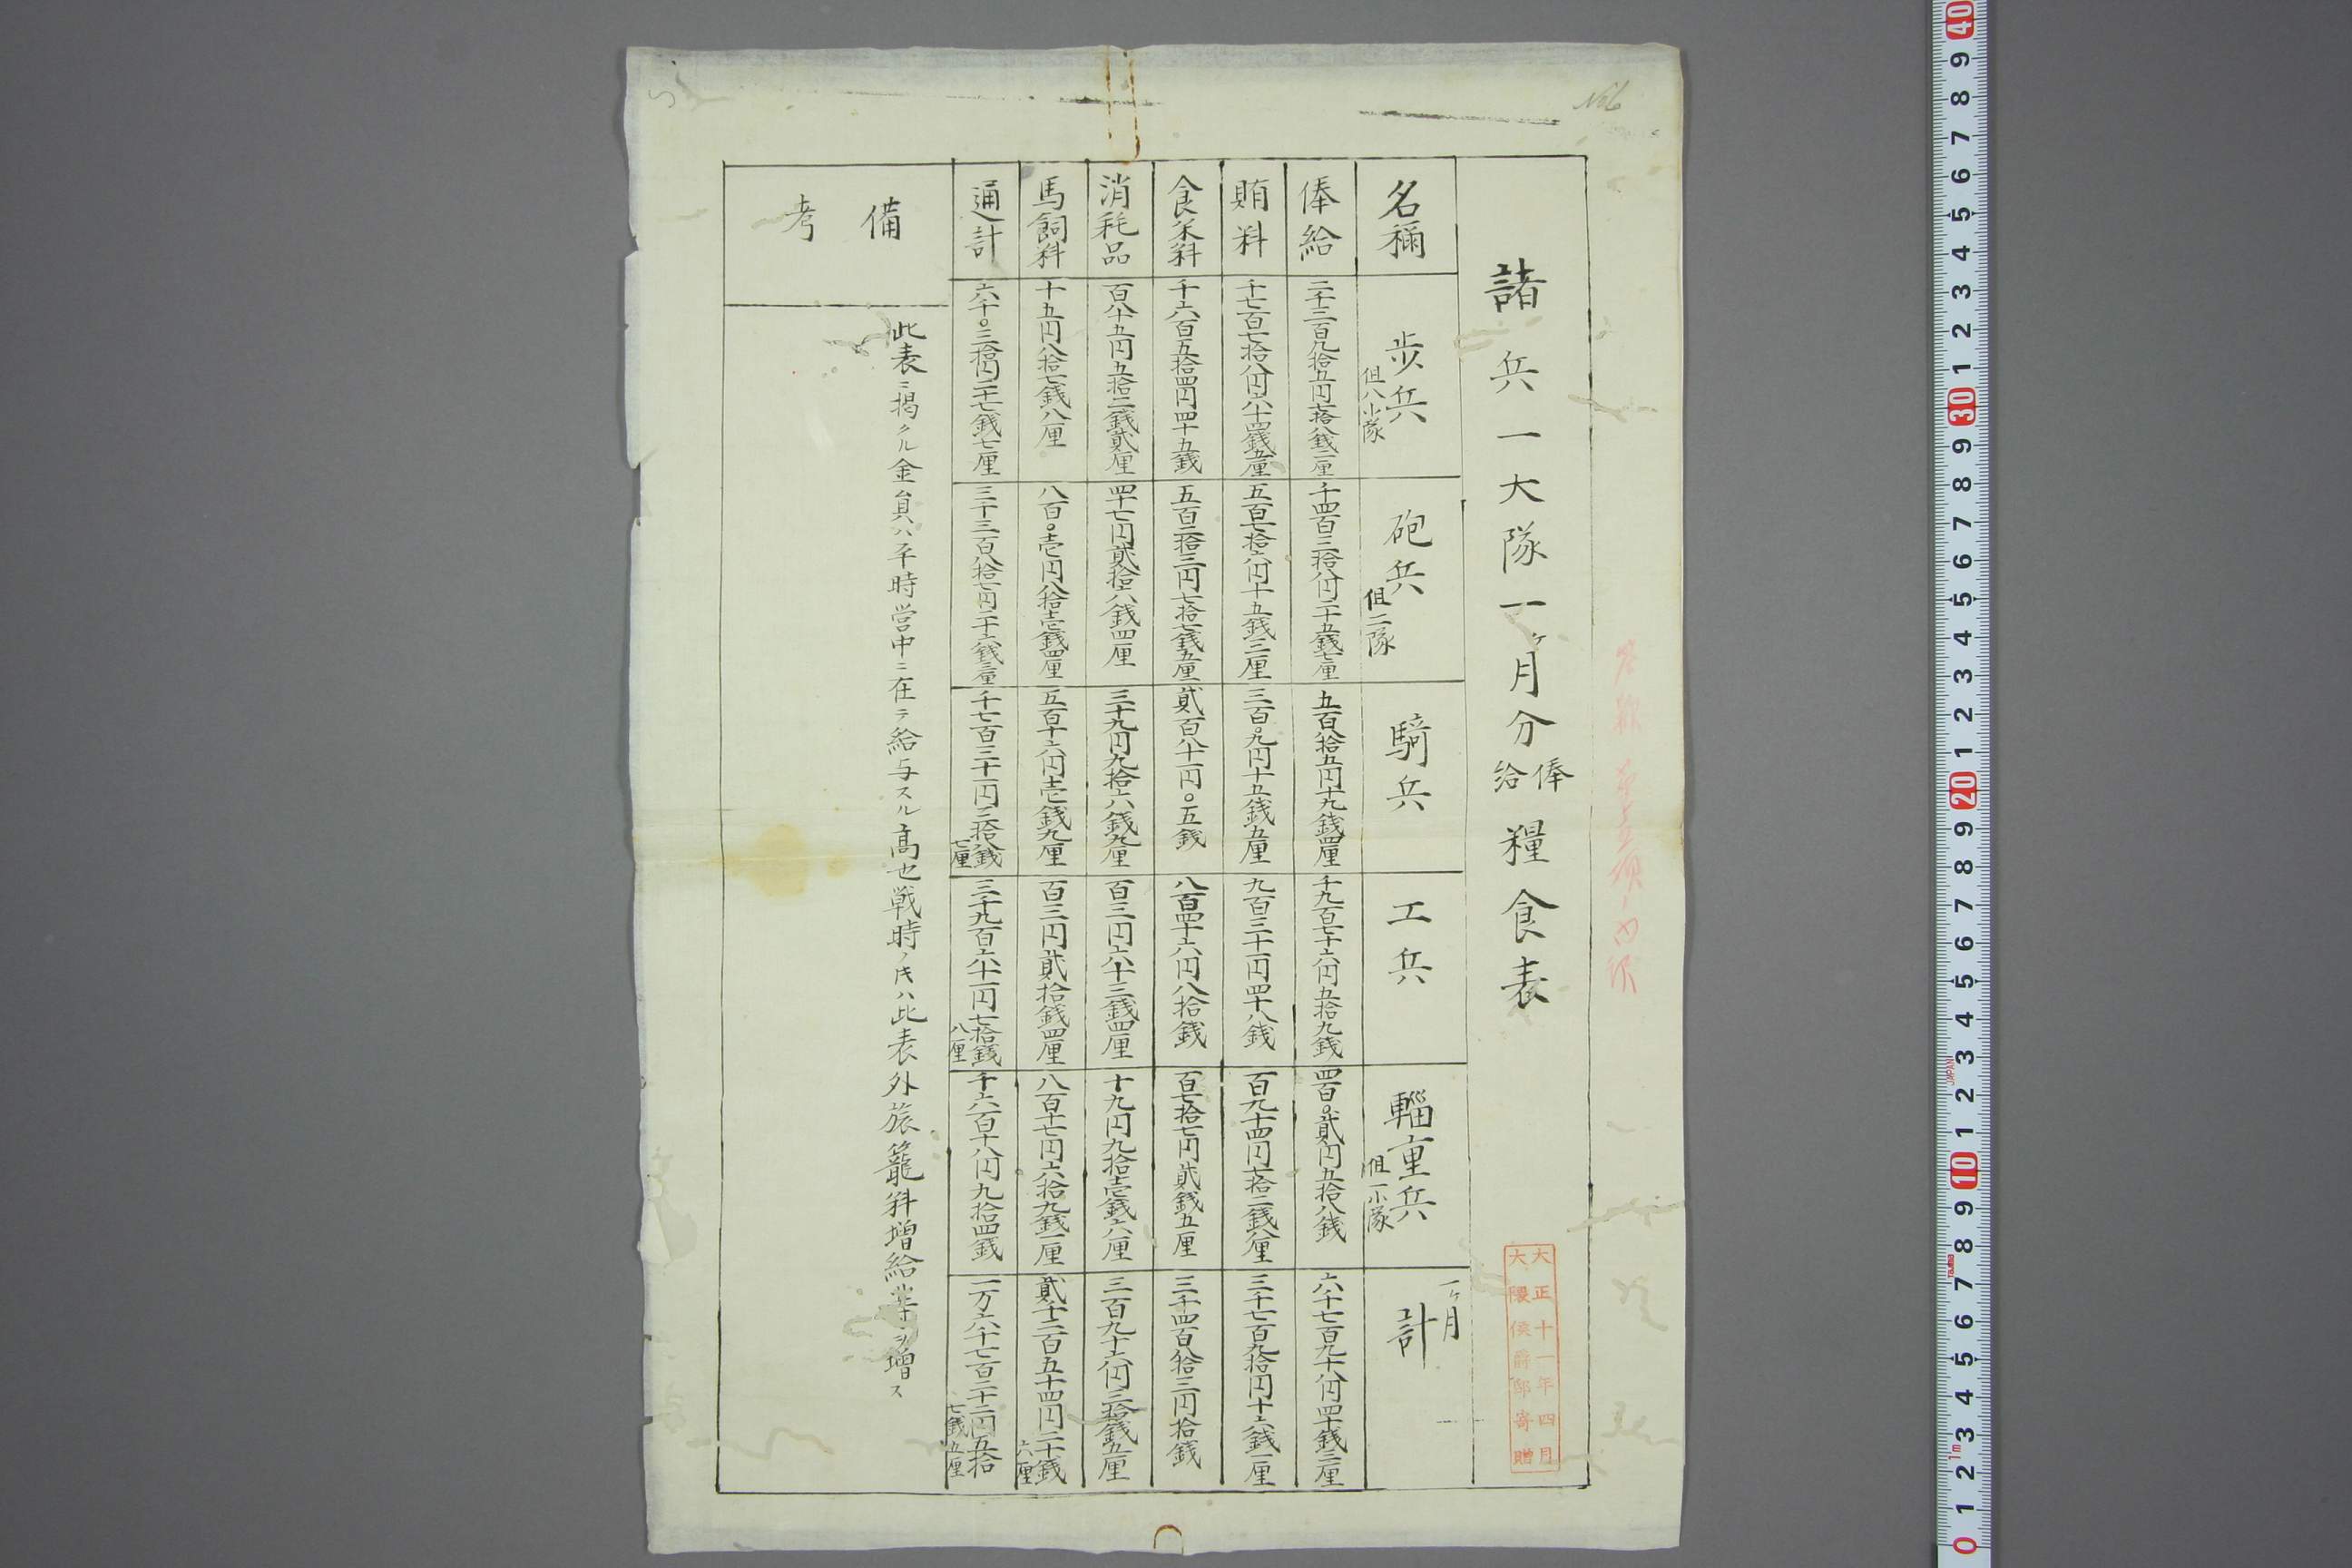 諸兵一大隊一ヶ月分俸給糧食表
大正十一年四月
大隈侯爵邸寄贈
名稱
歩兵
但八小隊
砲兵
但二隊
騎兵
工兵
輜重兵
但一小隊
一ヶ月
計
俸給
二千三百九拾五円七拾八銭二厘
千四百三拾八円二十五銭七厘
五百八拾五円十九銭四厘
千九百七十六円五拾九銭
四百〇貳円五拾八銭
六千七百九十八円四十銭三厘
賄料
千七百七拾八円六十四銭五厘
五百七拾六円十五銭二厘
三百〇九円十五銭五厘
九百三十一円四十八銭
百九十四円七拾二銭八厘
三千七百九拾円十六銭一厘
食米料
千六百五拾四円四十五銭
五百二拾三円七拾七銭五厘
貳百八十一円〇五銭
八百四十六円八拾銭
百七拾七円貳銭五厘
三千四百八拾三円拾銭
消耗品
百八十五円五拾二銭貳厘
四十七円貳拾八銭四厘
三十九円九拾六銭九厘
百三円六十三銭四厘
十九円九拾壱銭六厘
三百九十六円三拾銭五厘
馬飼料
十五円八拾七銭八厘
八百〇壱円八拾壱銭四厘
五百十六円壱銭九厘
百三円貳拾銭四厘
八百十七円六拾九銭一厘
貳千二百五十四円二十銭
六厘
通計
六千〇三拾円二十七銭七厘
三千三百八拾七円二十六銭三厘
千七百三十一円三拾八銭
七厘
三千九百六十一円七拾銭
八厘
千六百十八円九拾四銭
一万六千七百二十二円五拾
七銭五厘
備考
此表ニ掲クル金員ハ平時営中ニ在テ給与スル高也戦時ノ氏ハ此表外旅籠料増給等ヲ増ス
No6